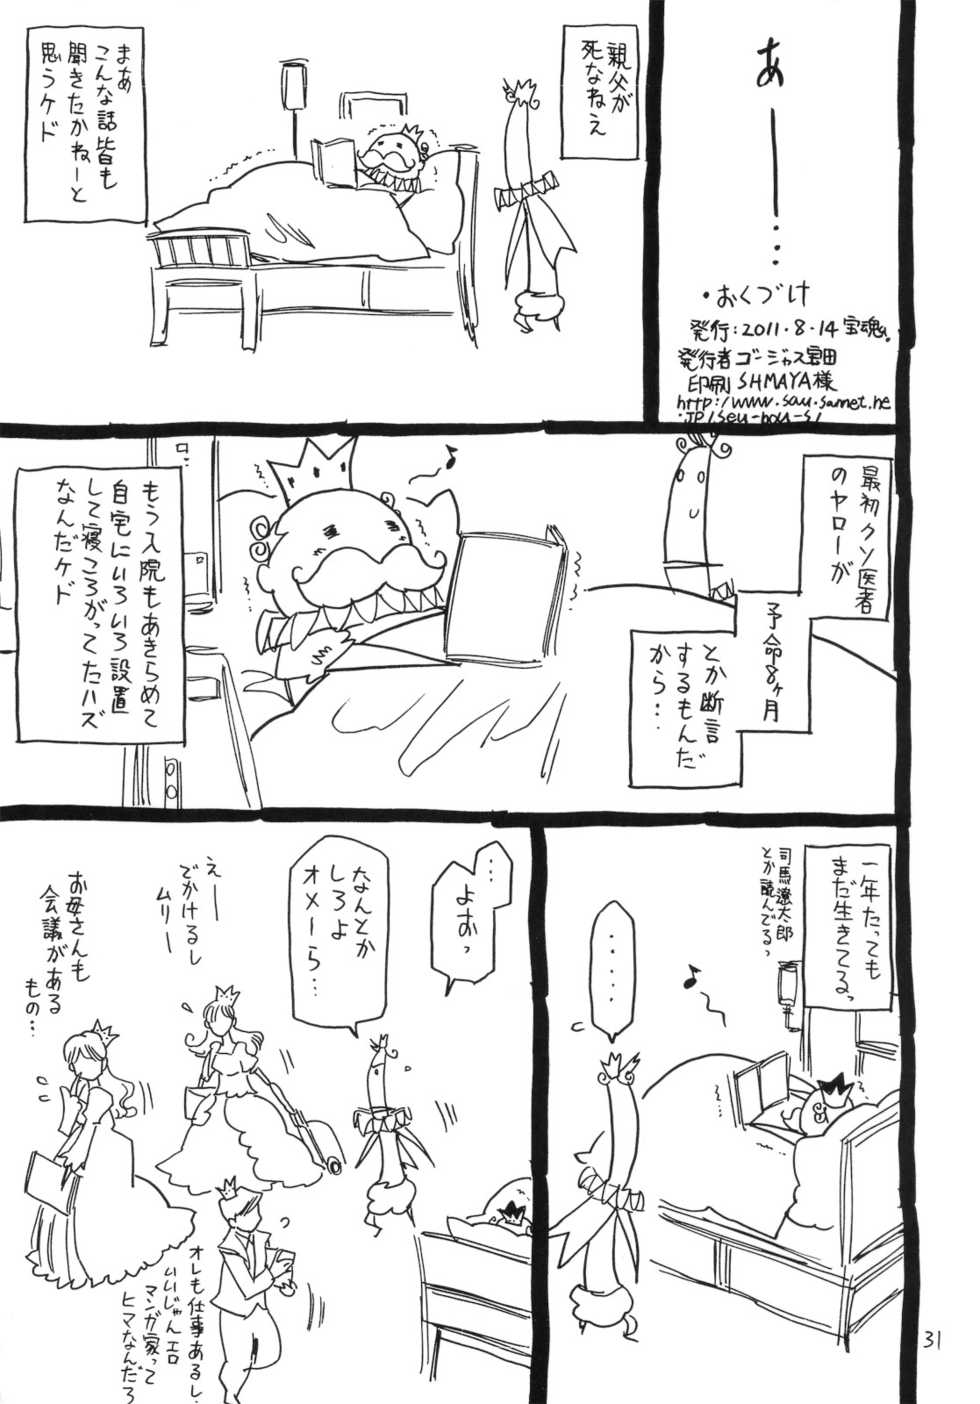 あーーー…
・おくづけ
発行:2011・8・14 宝魂。
発行者 ゴージャス宝田
印刷 SHIMAYA様
親父が
死なねえ
まあ
こんな話皆も
聞きたかねーと
思うケド
最初クソ医者
のヤローが
予命8ヶ月
とか断言
するもんだ
から…
もう入院もあきらめて
自宅にいろいろ設置
して寝ころがってたハズ
なんだケド
一年たっても
まだ生きてるっ
司馬遼太郎
とか読んでるっ
・・・・・
…
よおっ
なんとか
しろよ
オメーら…
えーー
でかけるし
ムリー
お母さんも
会議がある
もの…
オレも仕事あるし、
いいじゃんエロ
マンガ家って
ヒマなんだろ
31